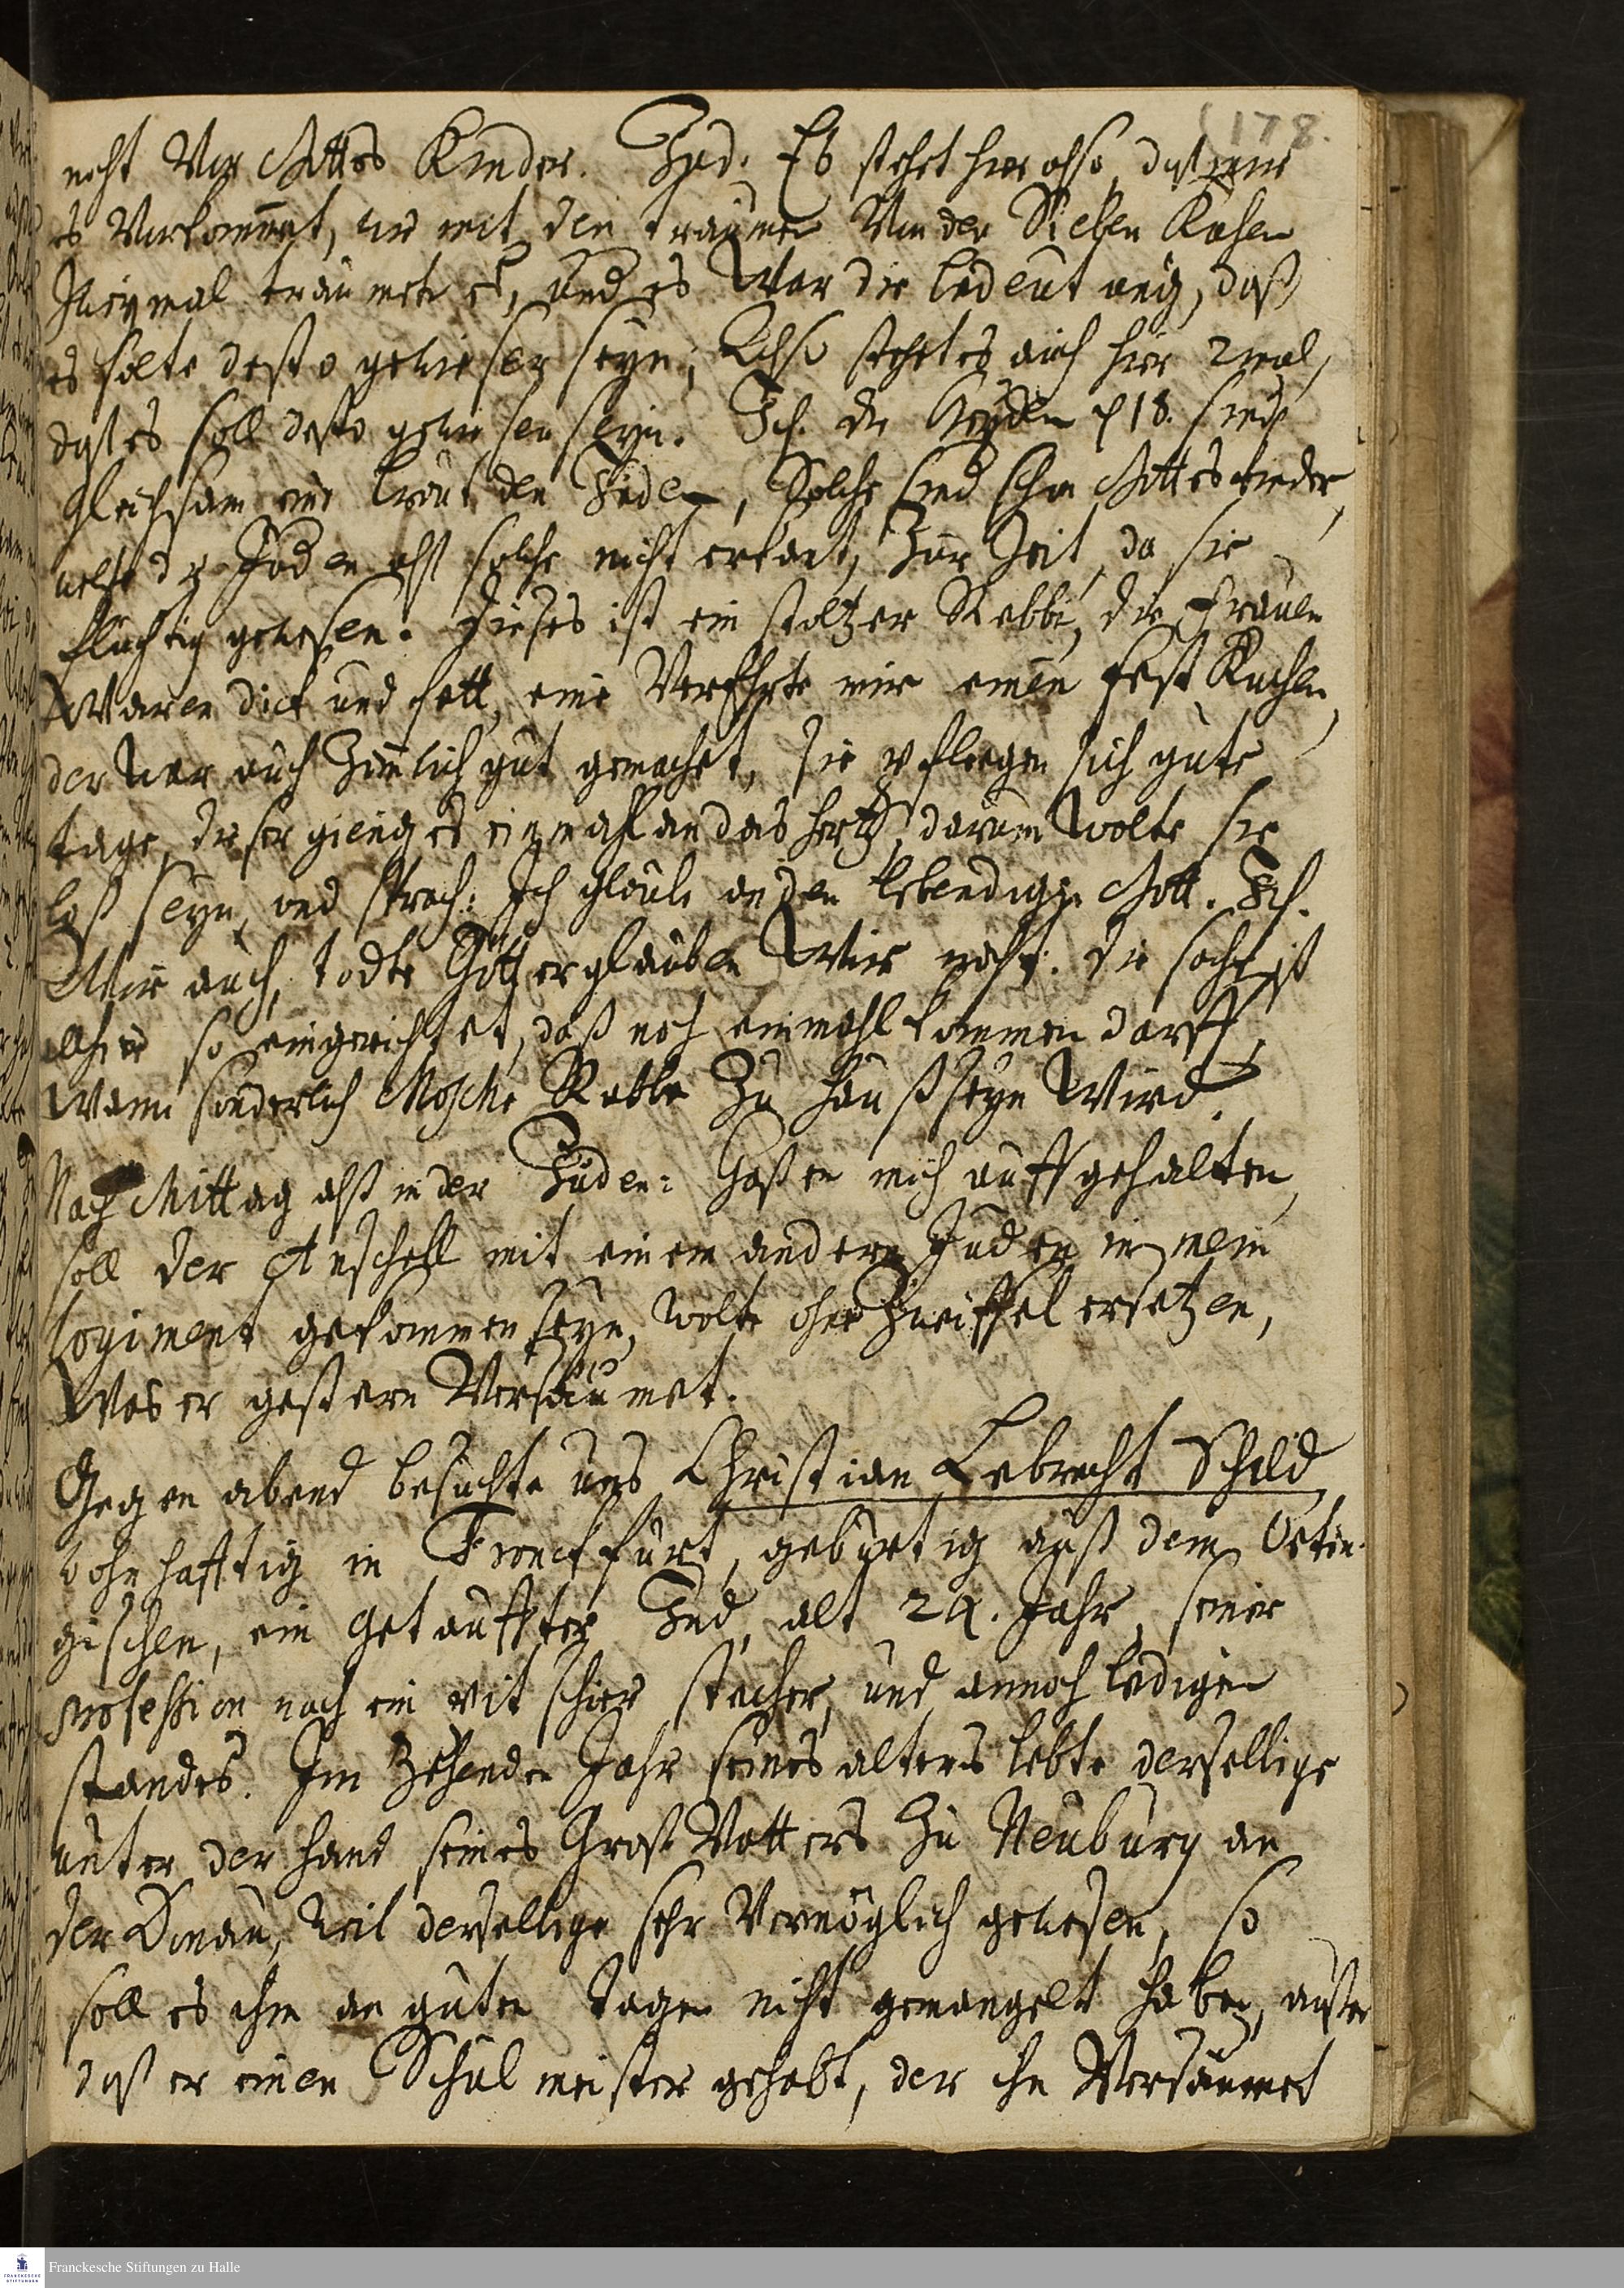 178.
nicht Vor Gottes Kinder. Jud. Es stehet hier also, daß
es Vorkommt, wie mit den träumen Von den Sieben Kühen
Zweymal träumete es, und es War die bedeutung, daß
es solte desto gewießer seyn; Also stehet es auch hier 2mal,
daß es soll desto gewießer seyn. Ich. die Heyden sind
gleichsam eine braut den Juden, Solche sind schon Gottes kinder,
die Juden alß solche nicht erkant, Zur Zeit, da sie
flüchtig gewesen. Dieses ist ein stoltzer Rebbi, die frauen
Waren dick und fett, eine Verehrte mir einen Fest Kuchen,
der War auch Zimlich gut gemachet, sie pflegen sich gute
tage, dieser gieng es einmahl an das hertz, darum Wolte sie
loß seyn, und sprach: Ich glaube an den lebendigen Gott. Ich.
Wir auch, todte Götter glauben Wir nicht. die sache ist
allhier so eingerichtet, daß noch einmahl kommen darff,
Wann sonderlich Mosche Rabbi Zu hauß seyn Wird.
Nach Mittag alß in der Juden: Gaßen mich auffgehalten,
soll der Anschell mit einem andern Juden in mein
Logiment gekommen seyn, Wolte ohne Zweiffel ersetzen,
Was er gestern Versäumet.
Gegen abend besuchte uns Christian Lebrecht Schild
wohnhafftig in Franckfurt, gebürtig auß dem Oetin-
gischen, ein getauffter Jud, alt 24. Jahr, seiner
profession nach ein pitschier stecher, und annoch ledigen
standes. Im Zehenden Jahr seines alters lebte dersellige
unter der hand seines Groß Vatters Zu Neuburg an
der Donau, Weil dersellige sehr Vermöglich gewesen, so
soll es ihm an guten tagen nicht gemangelt haben, außer
daß er einen Schulmeister gehabt, der ihn Versäumet
Franckesche Stiftungen zu Halle